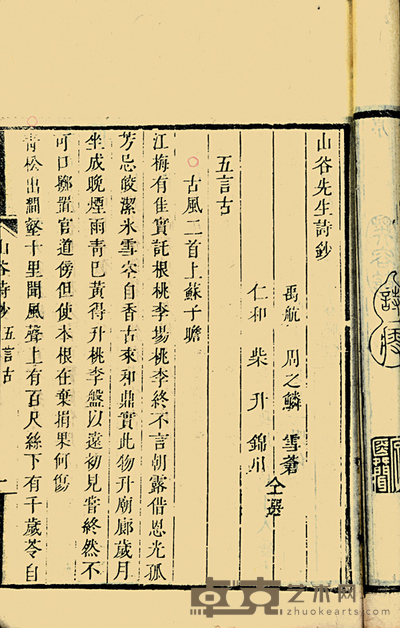 山谷先生詩鈔
禹航 周之鱗 雪蒼
仁和 柴升 錦川
仝選
五言古
古風二首上蘇子瞻
江梅有佳實託根桃李場桃李終不言朝露借恩光孤
芳忌皎潔氷雪空自香古來和鼎實此物升廟廊歲月
坐成晚煙雨青已黃得升桃李盤以遠初見嘗終然不
可口擲置官道傍但使本根在棄捐果何傷
青松出澗壑十里聞風聲上有百尺絲下有千歲苓自
山谷詩鈔 五言古 一
卓克艺术网
zhuokearts.com